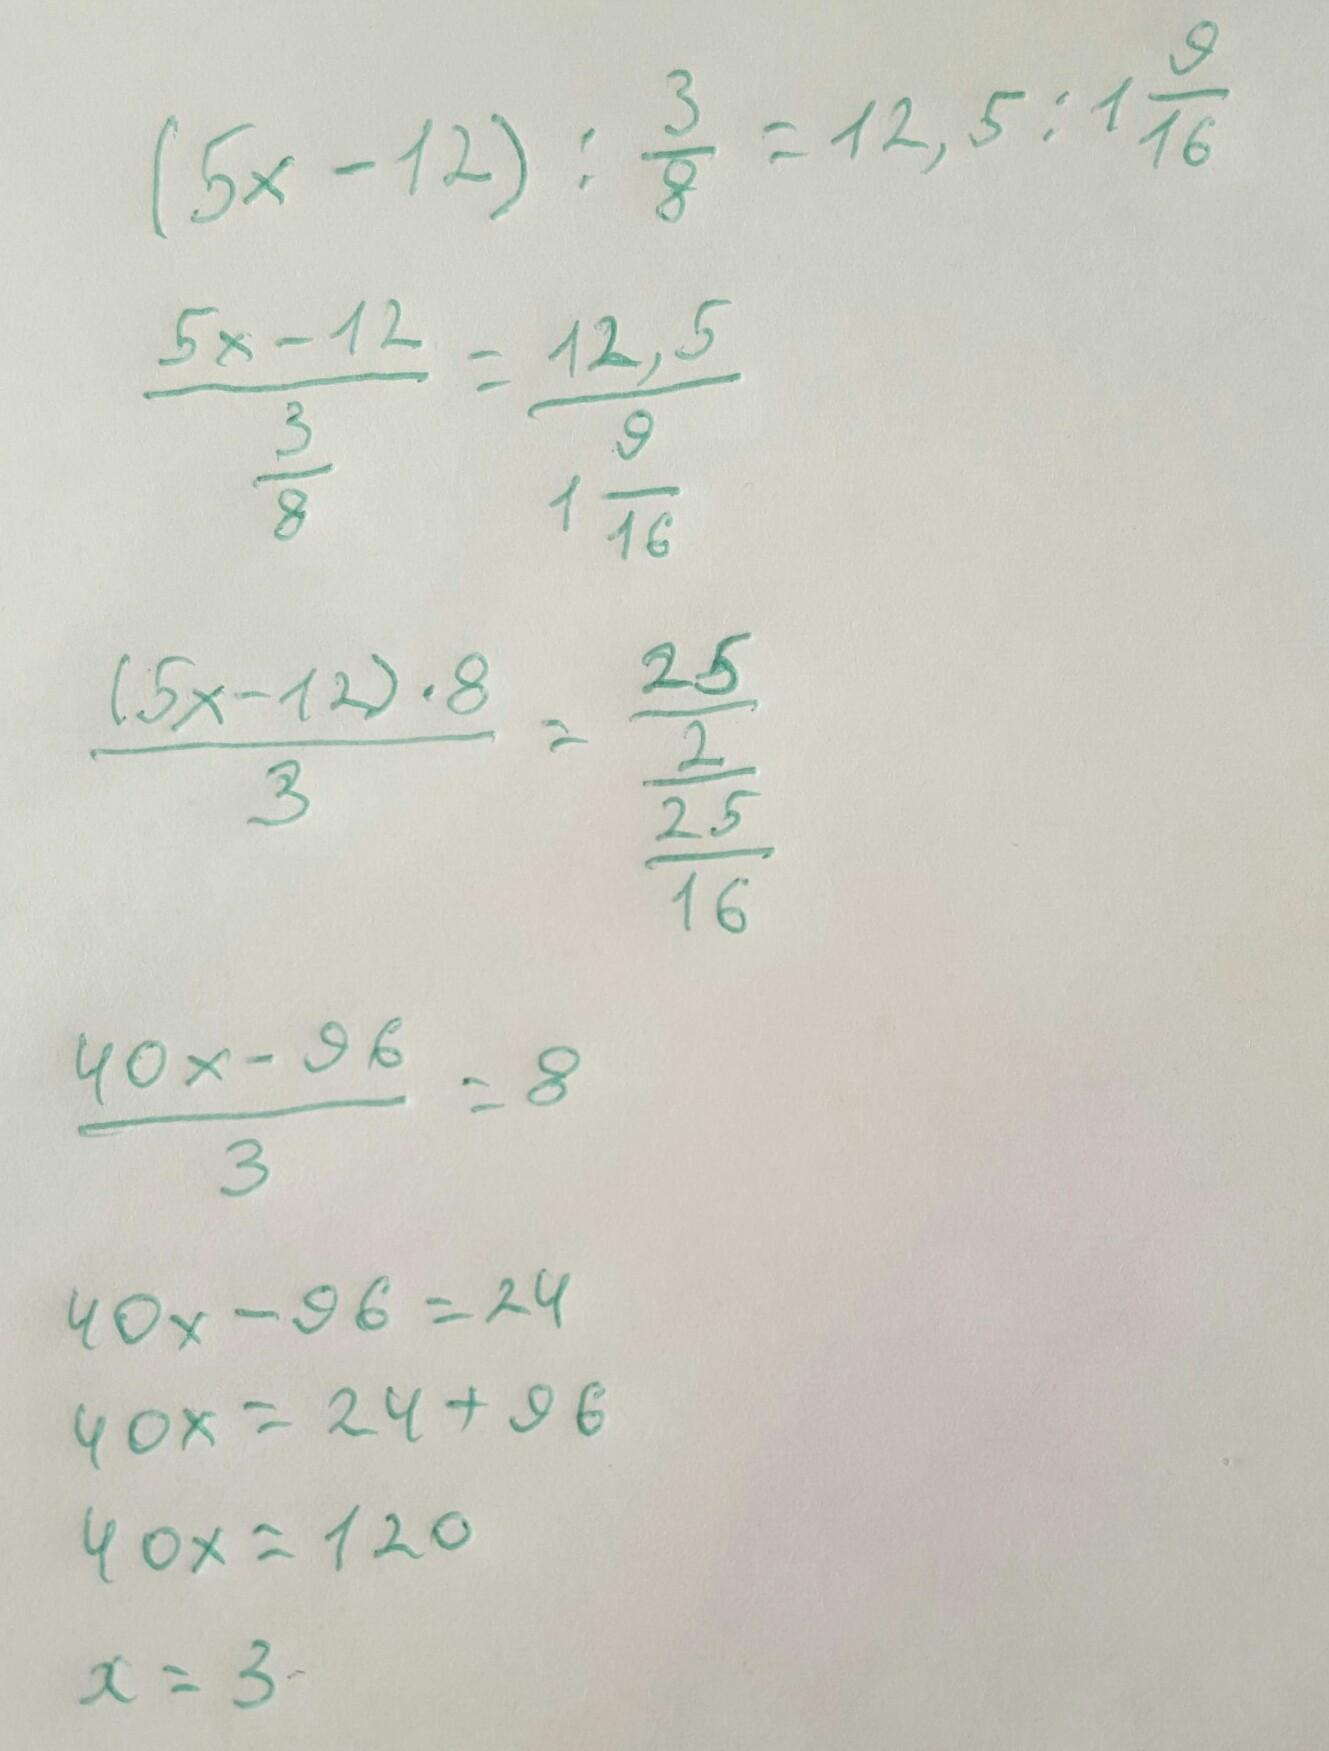 (5x-12) : 3/8 = 12,5 : 1 9/16
(5x-12)/(3/8) = 12,5/(1 9/16)
((5x-12)·8)/3 = (25/2)/(25/16)
(40x-96)/3 = 8
40x-96=24
40x=24+96
40x=120
x=3